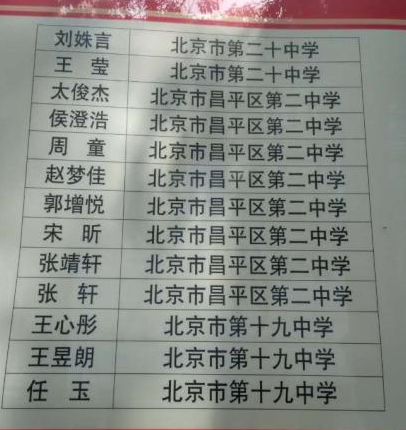 刘姝言 北京市第二十中学
王 莹 北京市第二十中学
太俊杰 北京市昌平区第二中学
侯澄浩 北京市昌平区第二中学
周 童 北京市昌平区第二中学
赵梦佳 北京市昌平区第二中学
郭增悦 北京市昌平区第二中学
宋 昕 北京市昌平区第二中学
张靖轩 北京市昌平区第二中学
张 轩 北京市昌平区第二中学
王心彤 北京市第十九中学
王昱朗 北京市第十九中学
任 玉 北京市第十九中学